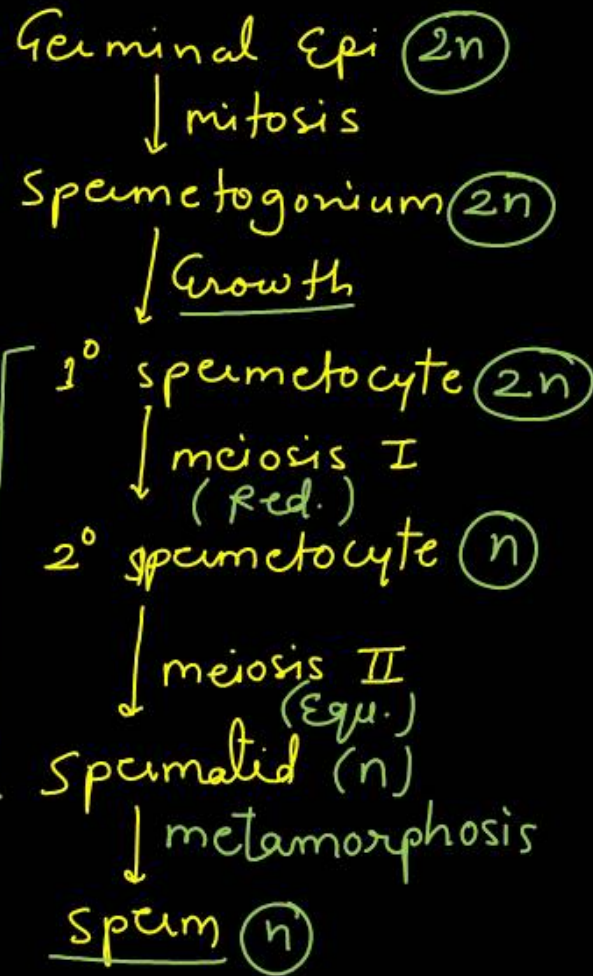 Germinal Epi 2n
mitosis
Spermetogonium 2n
Growth
1° spermetocyte 2n
meiosis I
(Red.)
2° spermetocyte n
meiosis II
(Equ.)
Spermatid (n)
metamorphosis
Sperm n